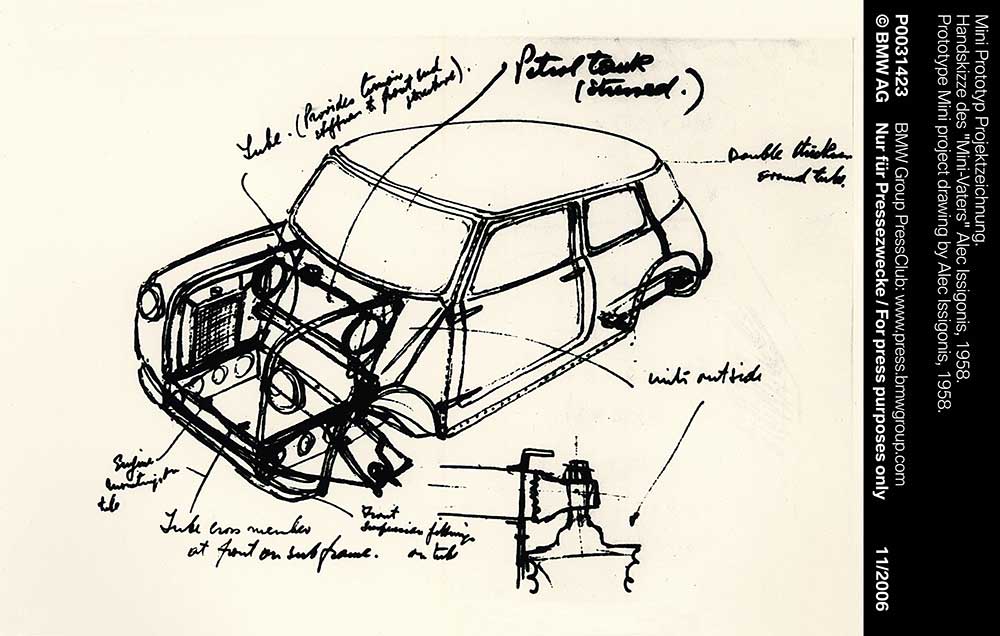 Petrol tank
(stressed.)
Tube. (Provides torsion and
stiffness to front end
structure).
Double thickness
around tube.
units outside
Engine
mountings on
tube
Tube cross member
at front on subframe.
Front
suspension fittings
on tube
Mini Prototyp Projektzeichnung.
Handskizze des "Mini-Vaters" Alec Issigonis, 1958.
Prototype Mini project drawing by Alec Issigonis, 1958.
P0031423 BMW Group PressClub: www.press.bmwgroup.com
© BMW AG Nur für Pressezwecke / For press purposes only 11/2006